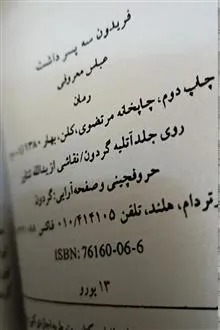 فریدون سه پسر داشت
عباس معروفی
رمان
چاپ دوم، چاپخانه مرتضوی، کلن، بهار ۱۳۸۰
روی جلد آتلیه گردون/نقاشی از یدالله
حروفچینی و صفحه‌آرایی: گردون
تردام، هلند، تلفن ۰۱۰/۴۱۴۱۰۵ فاکس
ISBN: 76160-06-6
۱۳ یورو